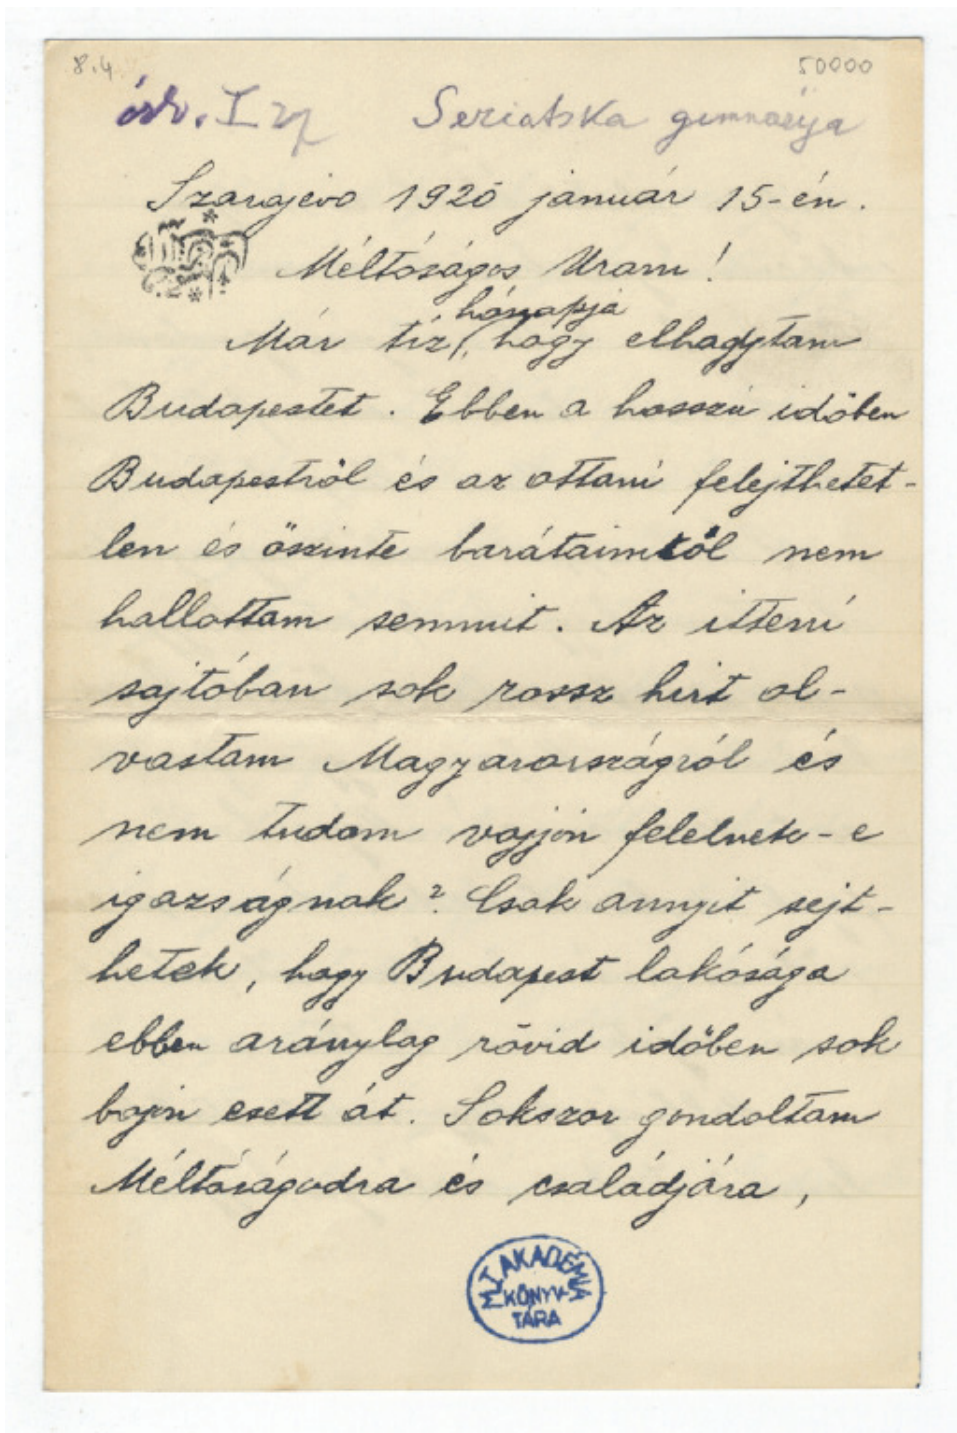 8.4 50000
Seriatska gimnazija
Szarajevo 1920 január 15-én.
Méltóságos Uram!
hónapja
Már tíz, hogy elhagytam
Budapestet. Ebben a hosszú időben
Budapestről és az ottani felejthetet-
len és őszinte barátaimtól nem
hallottam semmit. Az itteni
sajtóban sok rossz hirt ol-
vastam Magyarországról és
nem tudom vajjon felelnek-e
igazságnak? Csak annyit sejt-
hetek, hogy Budapest lakósága
ebben aránylag rövid időben sok
bajon esett át. Sokszor gondoltam
Méltóságodra és családjára,
M. T. AKADÉMIA
KÖNYV-
TÁRA